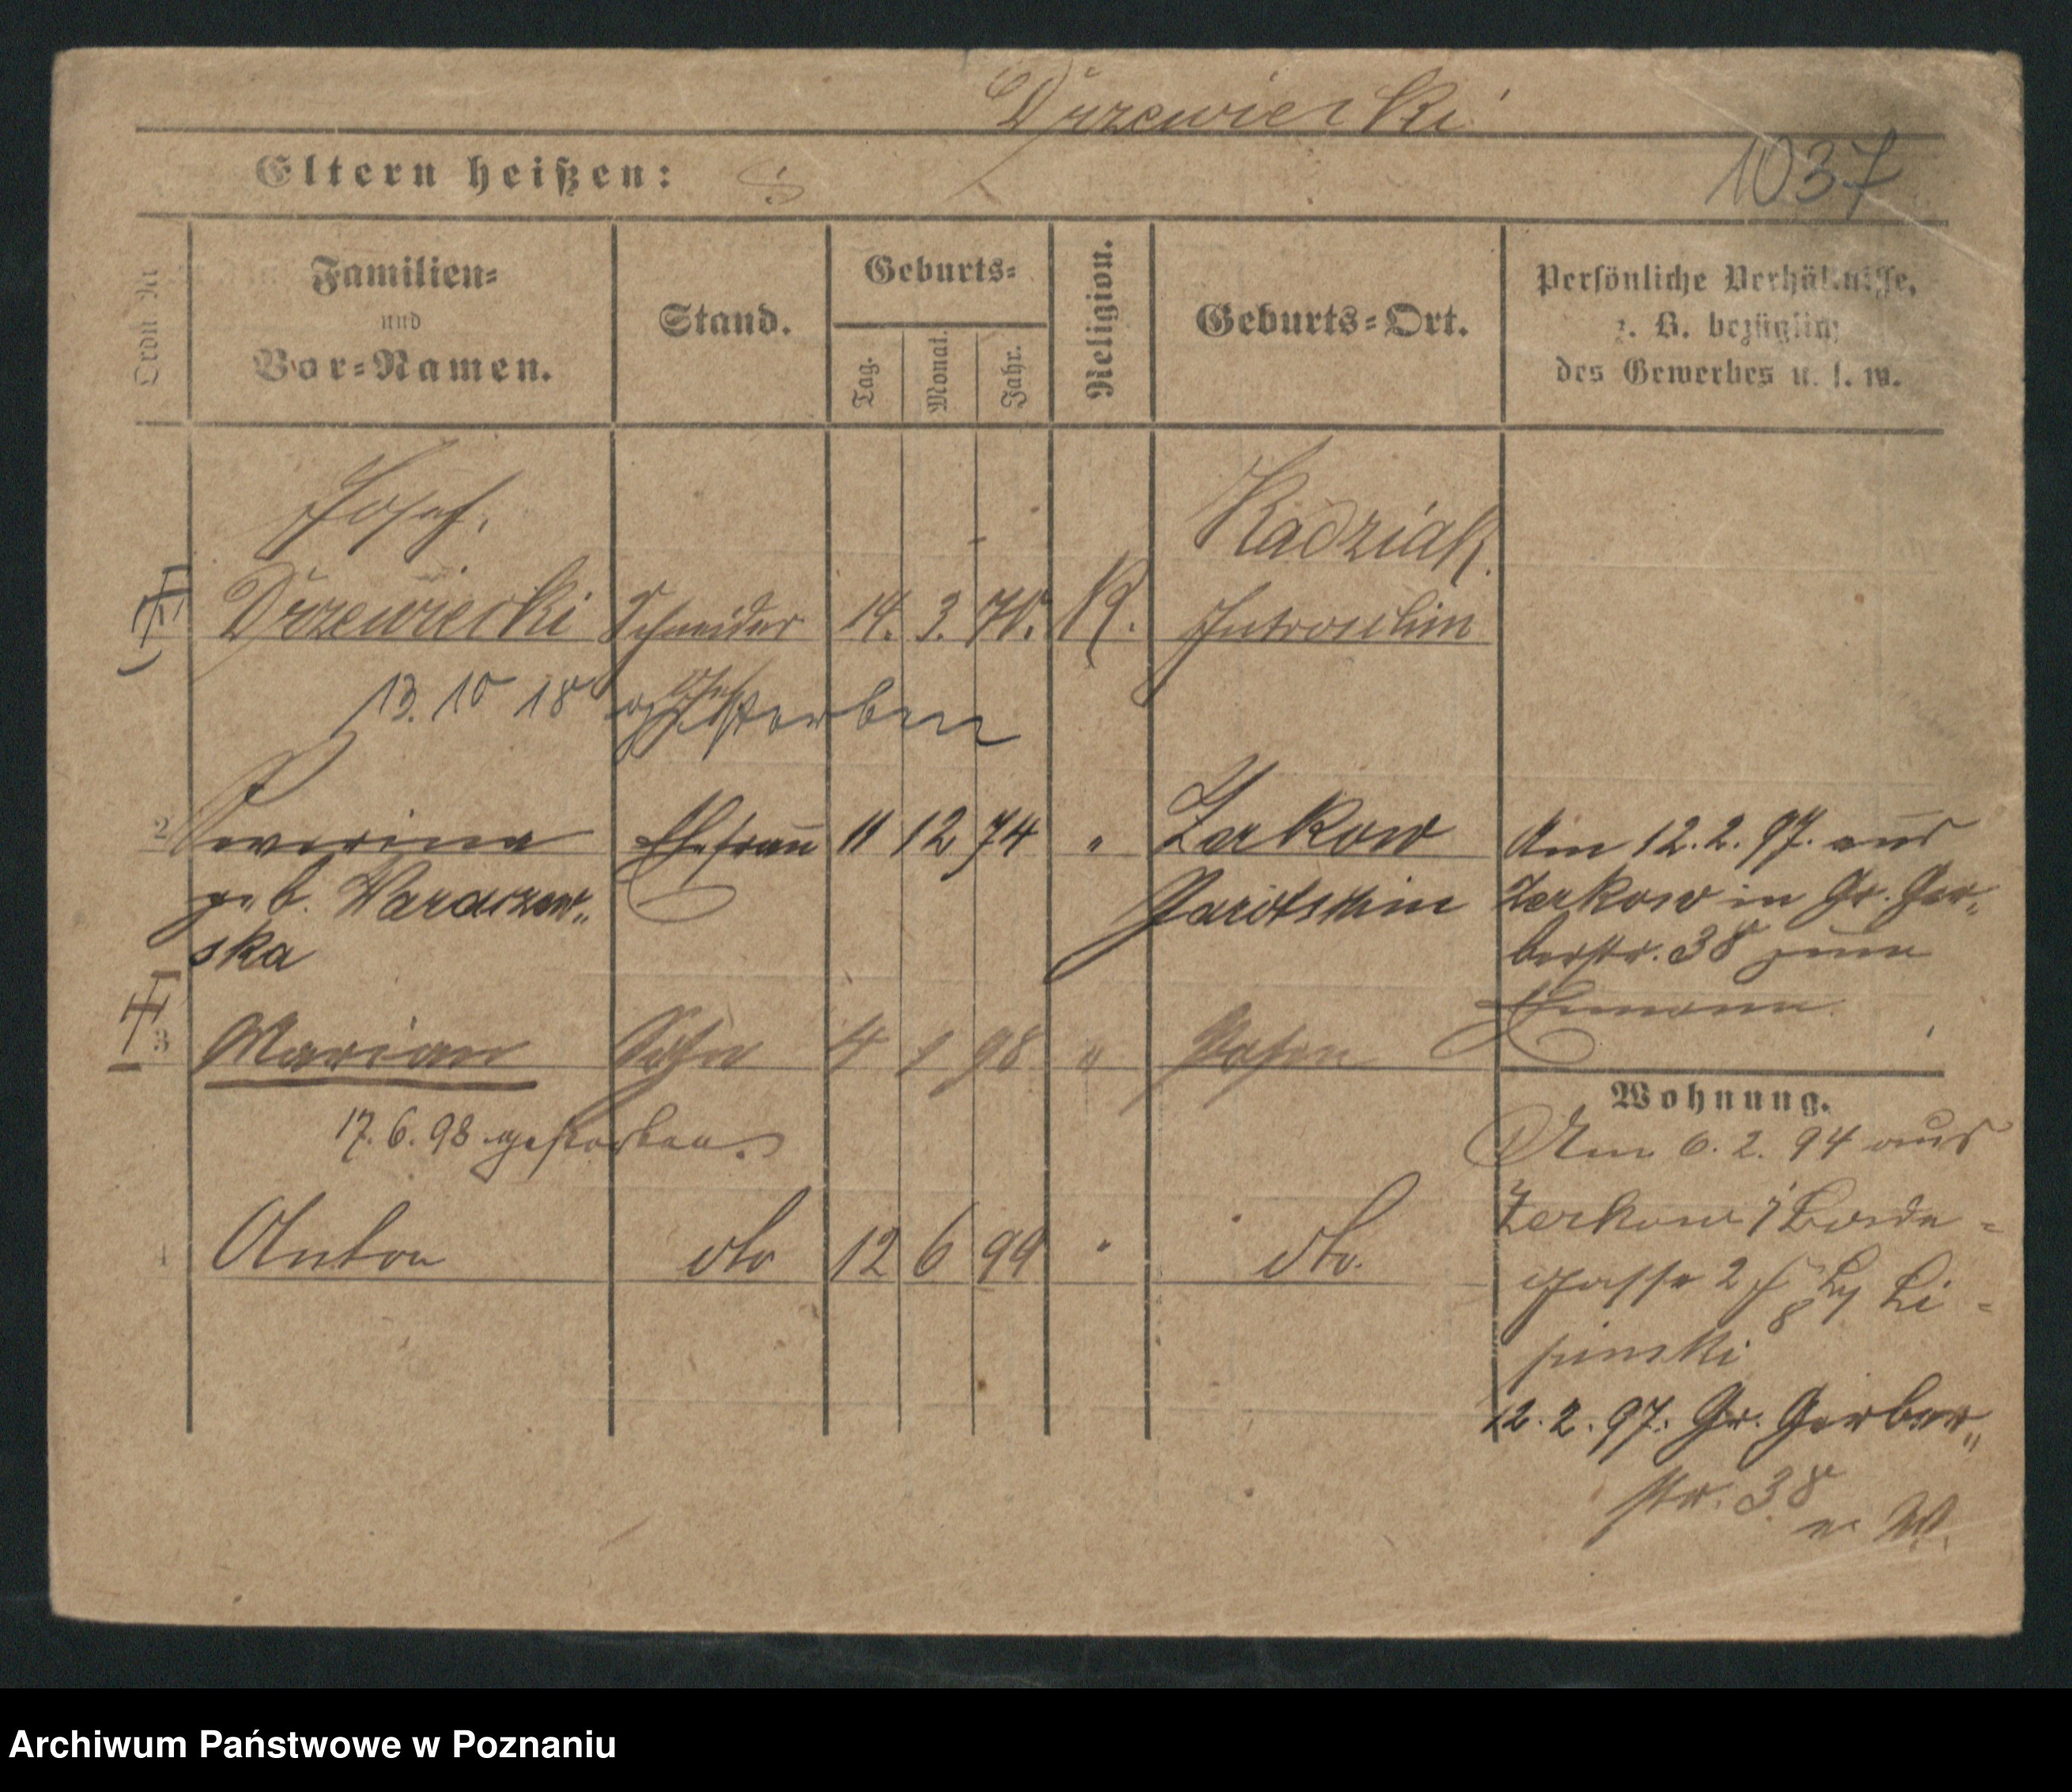 Drzewiecki
Eltern heißen:
1037
Ordn Nr
Familien-
und
Vor-Namen.
Stand.
Geburts-
Tag.
Monat.
Jahr.
Religion.
Geburts-Ort.
Persönliche Verhältnisse,
z. B. bezüglich
des Gewerbes u. s. w.
Josef.
Drzewiecki Schneider 14. 3. 70. K. Kadziak
Jutroschin
13. 10 18 gestorben
2 Severina Ehefrau 11 12 74 " Zerkow
geb. Waraczew„
ska
Jarotschin
Am 12. 2. 97. aus
Zerkow in Gr. Ger„
berstr. 38 zum
Ehemann.
3 Marian Sohn 4 1 98 " Posen
17. 6. 98 gestorben.
4 Anton dto 12 6 99 " dto.
Wohnung.
Am 6. 2. 94 aus
Zerkow
gasse 2 Li-
pinski
12. 2. 97. Gr. Gerber„
str. 38
n. W.
Archiwum Państwowe w Poznaniu